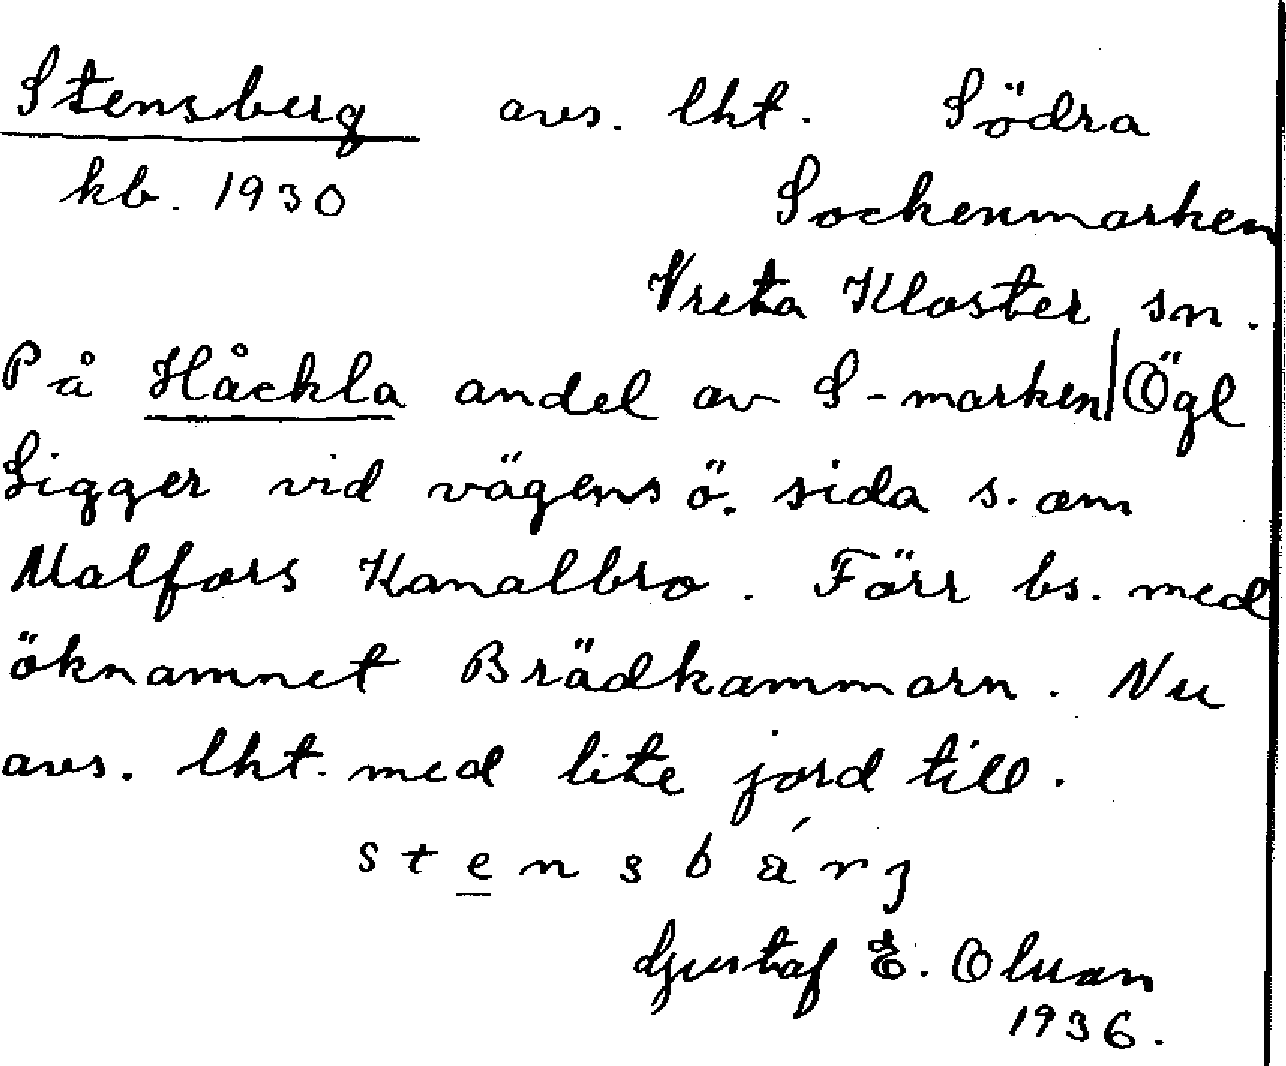 Stensberg avs. lht. Södra
kb. 1930 Sockenmarken
Vreta Kloster sn.
På Håckla andel av S-marken Ögl
Ligger vid vägens ö. sida s. om
Malfors Kanalbro. Förr bs. med
öknamnet Brädkammarn. Nu
avs. lht. med lite jord till.
stensbärj
Gustaf E. Olsson
1936.